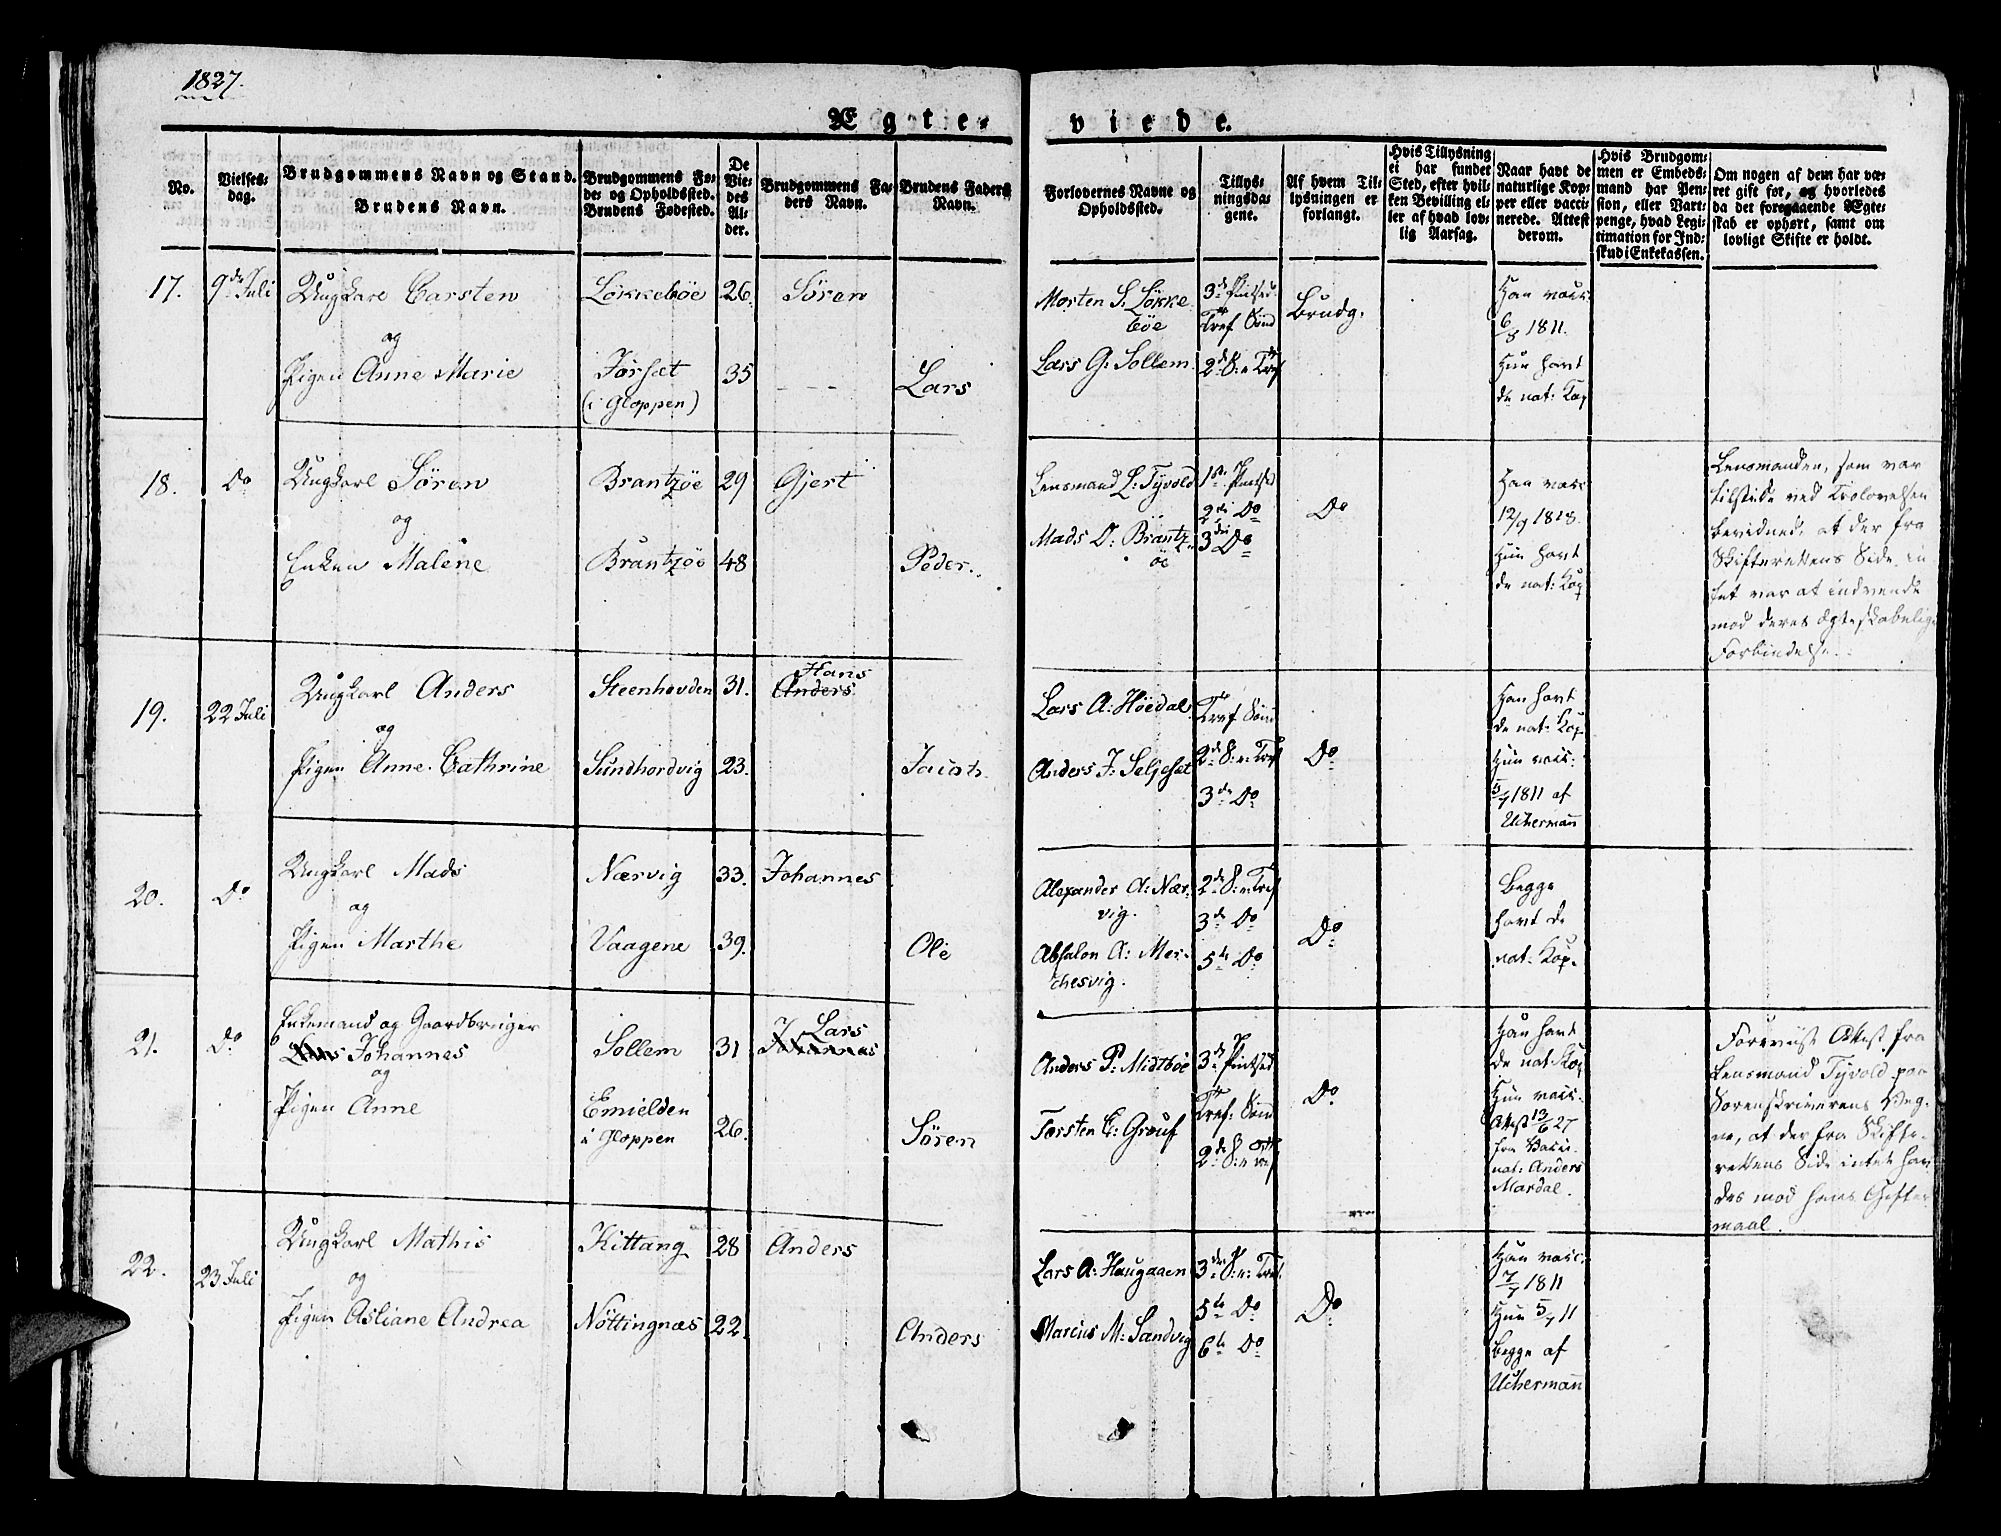 1827.
Ægte-
viede.
No.
Vielses-
dag.
Brudgommens Navn og Stand.
Brudens Navn.
Brudgommens Fø-
de- og Opholdssted.
Brudens Fødested.
De
Vie-
des
Al-
der.
Brudgommens Fa-
ders Navn.
Brudens Faders
Navn.
Forlovernes Navne og
Opholdssted.
Tillys-
ningsda-
gene.
Af hvem Til-
lysningen er
forlangt.
Hvis Tillysning
ei har fundet
Sted, efter hvil-
ken Bevilling el-
ler af hvad lov-
lig Aarsag.
Naar havt de
naturlige Kop-
per eller vacci-
nerede. Attest
derom.
Hvis Brudgom-
men er Embeds-
mand har Pen-
sion, eller Vart-
penge, hvad Legi-
timation for Ind-
skud i Enkekassen.
Om nogen af dem har væ-
ret gift før, og hvorledes
da det foregaaende Ægte-
skab er ophørt, samt om
lovligt Skifte er holdt.
17.
9de Juli
Ungkarl Carsten
og
Pigen Anne Marie
Løkkebøe
Førsæt
(i Gloppen)
26.
35
Søren
Lars
Morten S: Løkke-
bøe
Lars G: Sollem
3de Pintsed.
Tref Sønd
2de S: e Tref
Brudg.
Han vacc.
6/8 1811.
Hun havt
de nat: Kop
18.
Do
Ungkarl Søren
og
Enken Malene
Brantzøe
Brantzøe
29
48
Gjert
Peder.
Lensmand L: Tyvold
Mads O: Brantz-
øe
1ste Pintsed
2de Do
3de Do
Do
Han vacc
12/9 1818.
Hun havt
de nat: Kop
Lensmanden, som var
tilstede ved Trolovelsen
bevidnede, at der fra
Skifterettens Side in-
tet var at indvende
mod deres ægteskabelige
Forbindelse.
19.
22 Juli
Ungkarl Anders
og
Pigen Anne Cathrine
Steenhovden
Sundhordvig
31.
23.
Hans
Anders
Jacob
Lars A: Høedal
Anders J: Seljeset
Tref Sønd
2de S: e: Tref
3de Do
Do
Han havt
de nat: Kop
Hun vacc:
5/7 1811 af
Uchermann
20.
Do
Ungkarl Mads
og
Pigen Marthe
Nærvig
Vaagene
33.
39.
Johannes
Ole
Alexander A: Nær-
vig.
Absalon A: Mer-
chesvig.
2de S: e: Tref
3de Do
5te Do
Do
Begge
havt de
nat: Kop.
21.
Do
Enkemand og Gaardbruger
Lars Johannes
og
Pigen Anne
Sollem
Emielden
i Gloppen
31
26.
Lars
Johannes
Søren
Anders P: Midtbøe
Torsten E: Grouf
3de Pintsed
Tref: Sønd
2de S: e Tref
Do
Han havt
de nat: Kop
Hun vacc.
Attest 13/6 27
fra Vacci-
nat: Anders
Mardal.
Foreviist Attest fra
Lensmand Tyvold paa
Sorenskriverens Veg-
ne, at der fra Skifte-
rettens Side intet hav-
des mod hans Gifter-
maal.
22.
23 Juli
Ungkarl Mathis
og
Pigen Asliane Andrea
Kittang
Nøttingnæs
28
22.
Anders
Anders
Lars A: Haugaaen
Marcius M: Sandvig
3de S: e: Tref.
5te Do
6te Do
Do
Han vacc.
7/7 1811
Hun 5/7 11
begge af
Uchermann